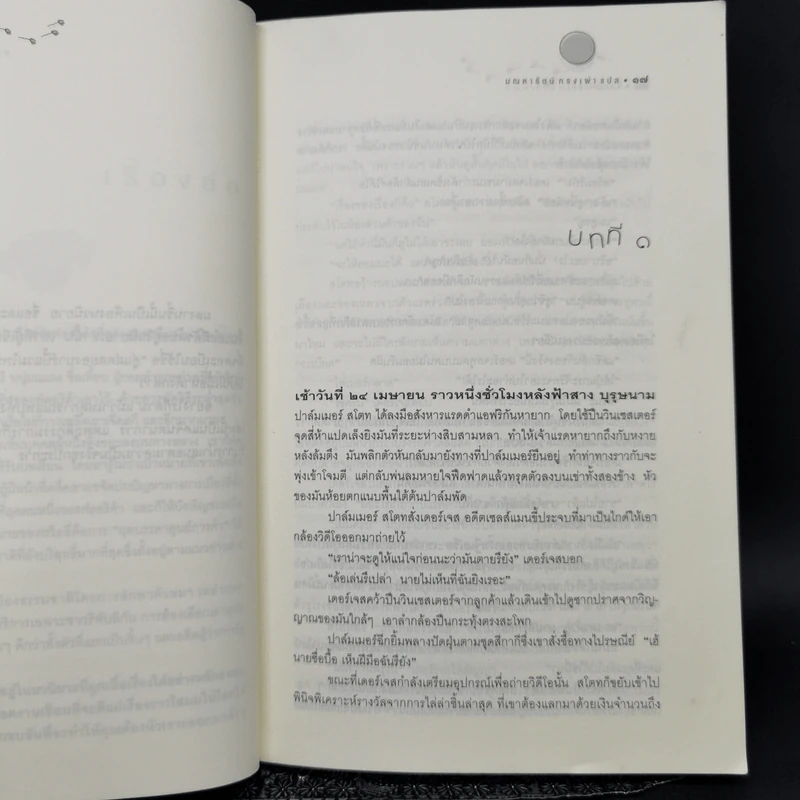 มณฑารัตน์ ทรงเผ่า แปล • ๑๗
บทที่ ๑
เช้าวันที่ ๒๔ เมษายน ราวหนึ่งชั่วโมงหลังฟ้าสาง บุรุษนาม
ปาล์มเมอร์ สโตท ได้ลงมือสังหารแรดดำแอฟริกันหายาก โดยใช้ปืนวินเชสเตอร์
จุดสี่ห้าแปดเล็งยิงมันที่ระยะห่างสิบสามหลา ทำให้เจ้าแรดหายากถึงกับหงาย
หลังล้มตึง มันพลิกตัวหันกลับมายังทางที่ปาล์มเมอร์ยืนอยู่ ทำท่าทางราวกับจะ
พุ่งเข้าโจมตี แต่กลับพ่นลมหายใจฟืดฟาดแล้วทรุดตัวลงบนเข่าทั้งสองข้าง หัว
ของมันห้อยตกแนบพื้นใต้ต้นปาล์มพัด
ปาล์มเมอร์ สโตทสั่งเดอร์เจส อดีตเซลส์แมนขี้ประจบที่มาเป็นไกด์ให้เอา
กล้องวิดีโอออกมาถ่ายไว้
“เราน่าจะดูให้แน่ใจก่อนนะว่ามันตายรึยัง” เดอร์เจสบอก
“ล้อเล่นรึเปล่า นายไม่เห็นที่ฉันยิงเรอะ”
เดอร์เจสคว้าปืนวินเชสเตอร์จากลูกค้าแล้วเดินเข้าไปดูซากปราศจากวิญ-
ญาณของมันใกล้ๆ เอาลำกล้องปืนกระทุ้งตรงสะโพก
ปาล์มเมอร์ฉีกยิ้มพลางปัดฝุ่นตามชุดสีกากีซึ่งเขาสั่งซื้อทางไปรษณีย์ “เฮ้
นายซื่อบื้อ เห็นฝีมือฉันรึยัง”
ขณะที่เดอร์เจสกำลังเตรียมอุปกรณ์เพื่อถ่ายวิดีโอนั้น สโตทก็ขยับเข้าไป
พินิจพิเคราะห์รางวัลจากการไล่ล่าชิ้นล่าสุด ที่เขาต้องแลกมาด้วยเงินจำนวนถึง